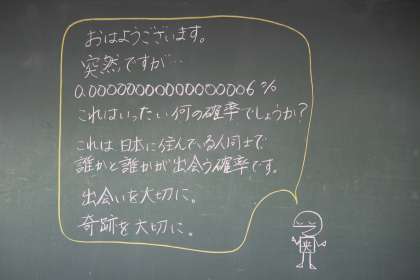 おはようございます。
突然ですが…
0.0000000000000000006%
これはいったい何の確率でしょうか?
これは日本に住んでいる人同士で
誰かと誰かが出会う確率です。
出会いを大切に。
奇跡を大切に。